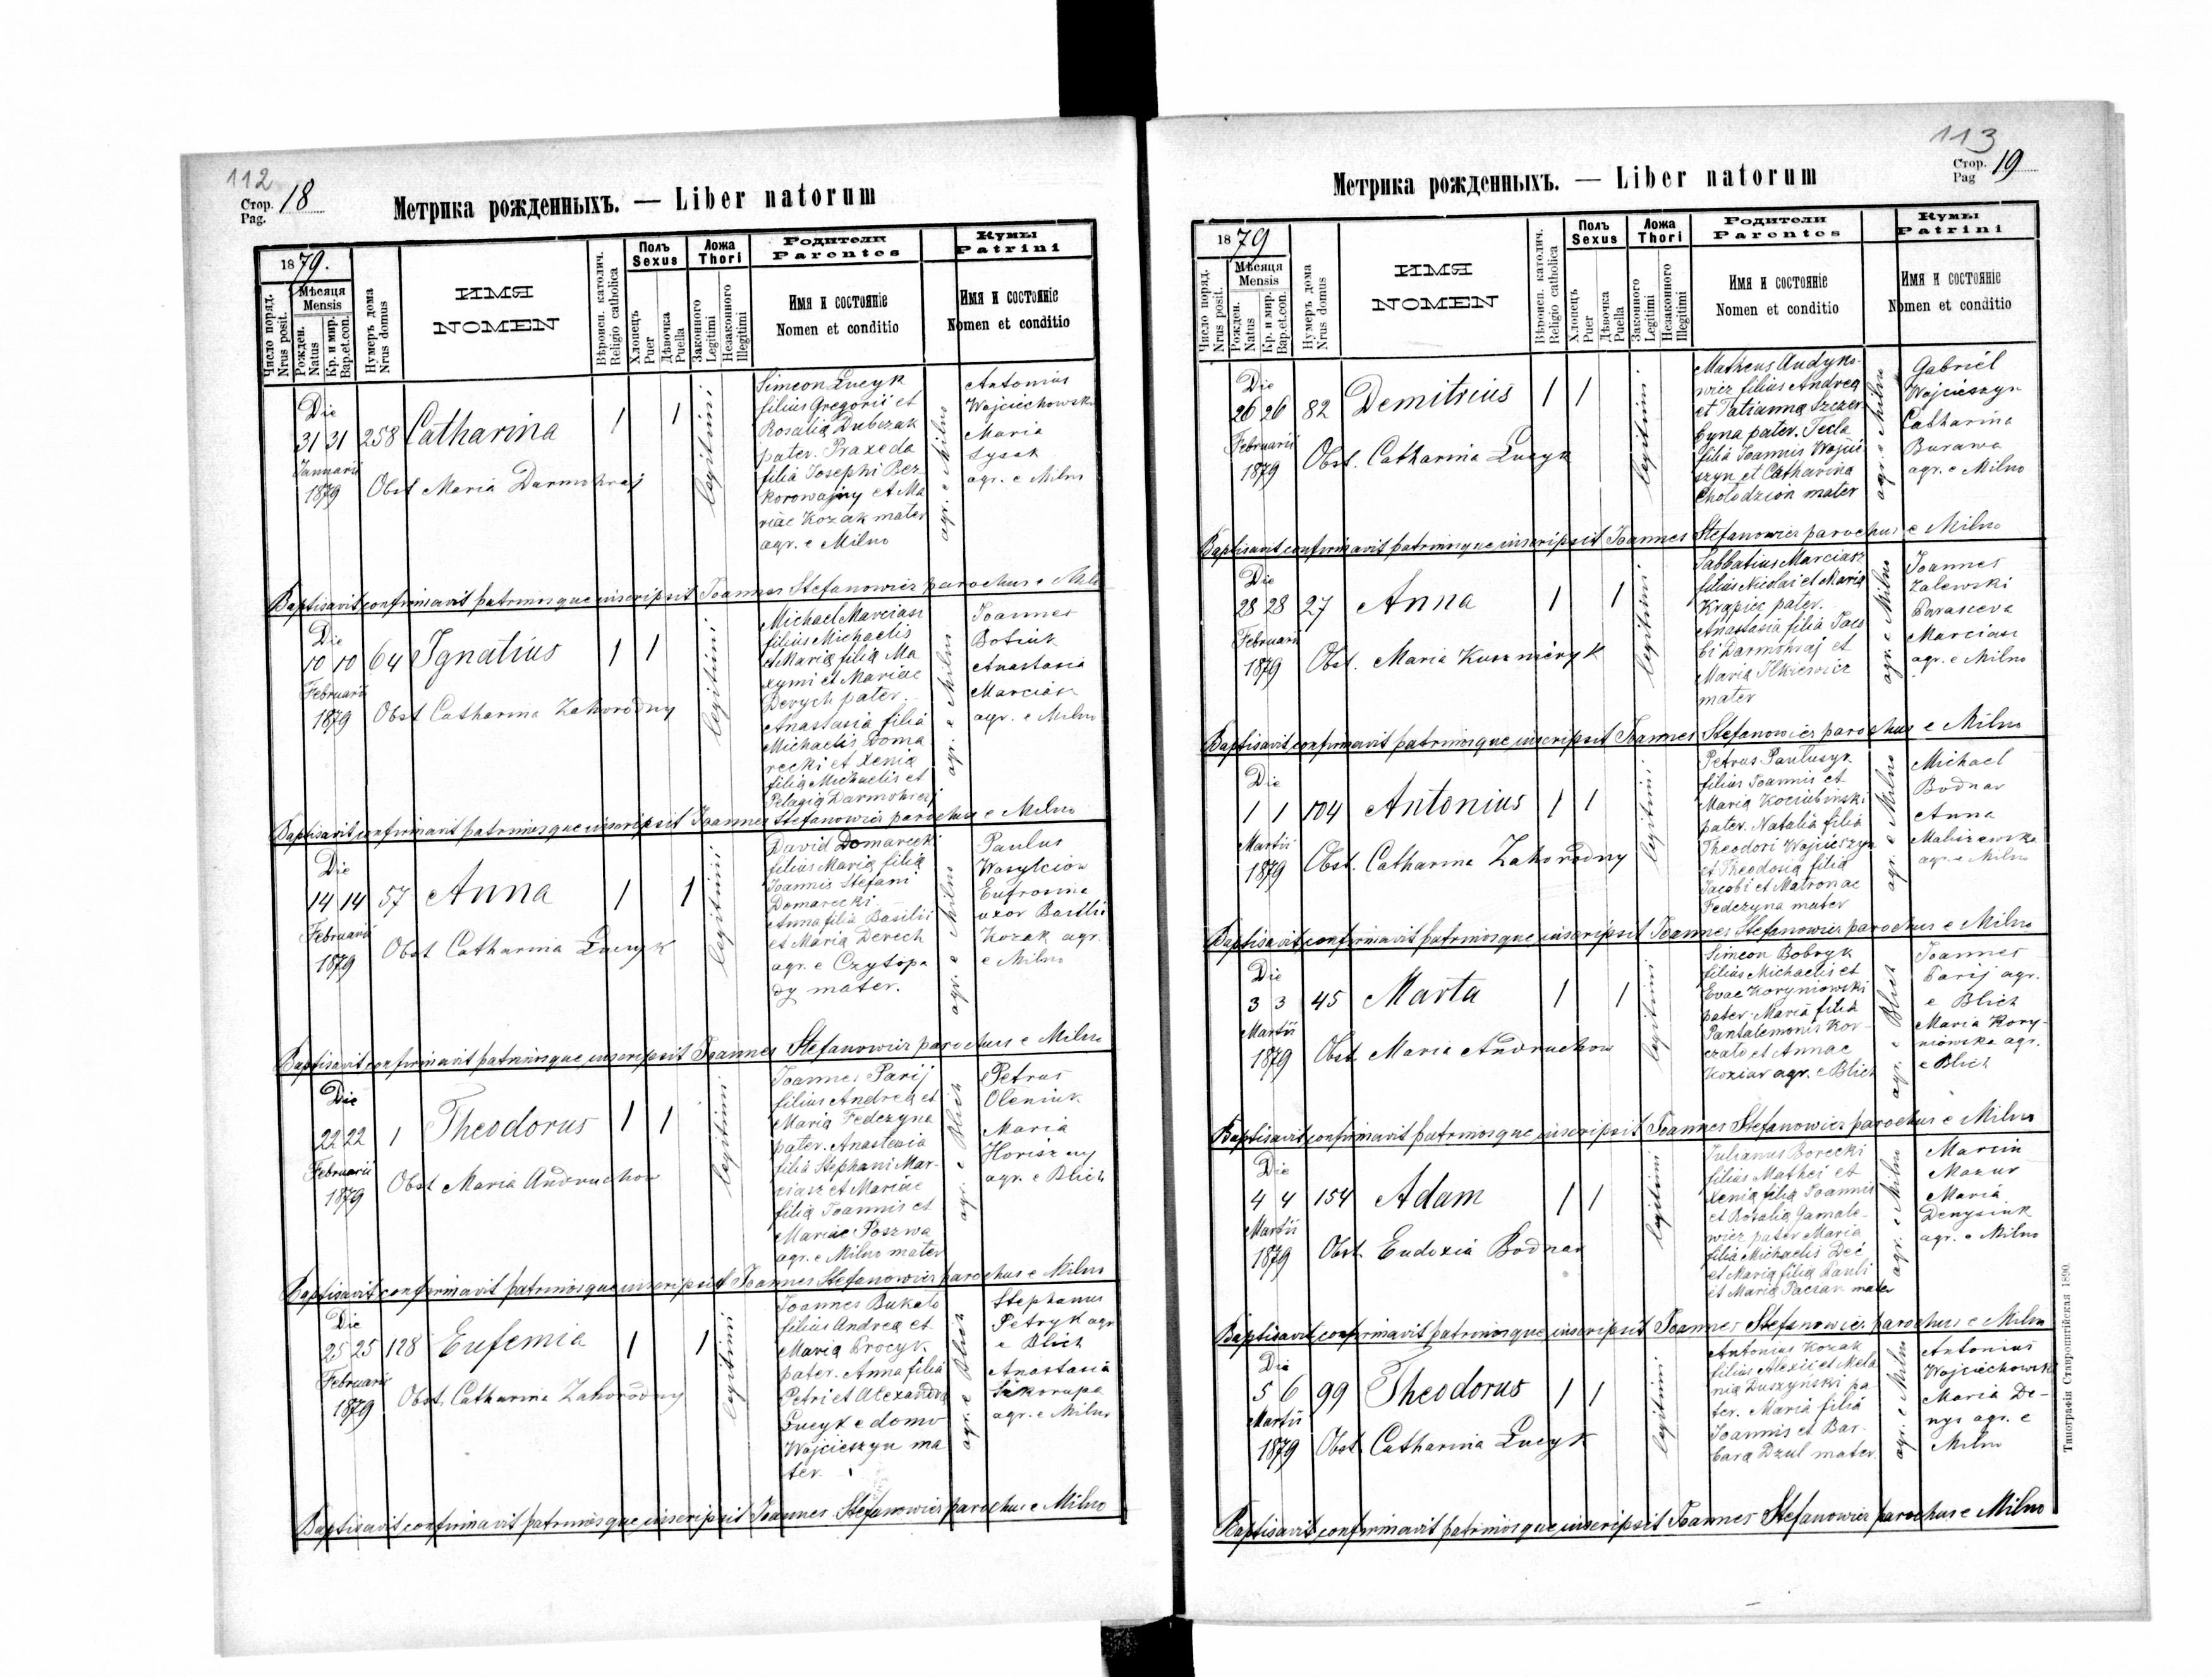 112
Стор. 18
Pag.
Метрика рожденныхъ. — Liber natorum
1879.
Число поряд.
Nrus posit.
Мѣсяця
Mensis
Рожден.
Natus
Кр. и мир.
Bap.et.con.
Нумеръ дома
Nrus domus
ИМЯ
NOMEN
Вѣроисп. католич.
Religio catholica
Полъ
Sexus
Хлопецъ
Puer
Дѣвочка
Puella
Ложа
Thori
Законного
Legitimi
Незаконного
Illegitimi
Родители
Parentes
Имя и состояніе
Nomen et conditio
Кумы
Patrini
Имя и состояніе
Nomen et conditio
Die
31 31 258 Catharina 1 1
Januarii
1879
Obst Maria Darmohraj
legitimi
Simeon Łucyk
filius Gregorii et
Rosalia Dubczak
pater. Praxeda
filia Josephi Bez
korowajny et Ma
riae Kozak mater
agr. e Milno
agr. e Milno
Antonius
Wojciechowski
Maria
Łysak
agr. e Milno
Baptisavit confirmavit patrinosque inscripsit Joannes Stefanowicz parochus e Milno
Die
10 10 64 Ignatius 1 1
Februarii
1879
Obst Catharina Zahorodny
legitimi
Michael Marciasz
filius Michaelis
et Maria filia Ma
xymi et Mariae
Derych pater.
Anastasia filia
Michaelis Doma
recki et Xenia
filia Michaelis et
Pelagia Darmohraj
agr. e Milno
Joannes
Botiuk
Anastasia
Marciasz
agr. e Milno
Baptisavit confirmavit patrinosque inscripsit Joannes Stefanowicz parochus e Milno
Die
14 14 57 Anna 1 1
Februarii
1879
Obst Catharina Łucyk
legitimi
David Domarecki
filius Maria filia
Joannis Stefani
Domarecki
Anna filia Basilii
et Maria Derech
agr. e Czytopa
dy mater.
agr. e Milno
Paulus
Wasylciow
Eufrosina
uxor Basilii
Kozak agr.
e Milno
Baptisavit confirmavit patrinosque inscripsit Joannes Stefanowicz parochus e Milno
Die
22 22 1 Theodorus 1 1
Februarii
1879
Obst Maria Andruchow
legitimi
Joannes Parij
filius Andrea et
Maria Fedczyna
pater. Anastasia
filia Stephani Mar-
ciasz et Mariae
filia Joannis et
Mariae Poszwa
agr. e Milno mater
agr. e Blich
Petrus
Oleniuk
Maria
Horiszny
agr. e Blich
Baptisavit confirmavit patrinosque inscripsit Joannes Stefanowicz parochus e Milno
Die
25 25 128 Eufemia 1 1
Februarii
1879
Obst. Catharina Zahorodny
legitimi
Joannes Bukało
filius Andrea et
Maria Procyk
pater. Anna filia
Petri et Alexandra
Łucyk e domo
Wojcieszyn ma
ter.
agr. e Blich
Stephanus
Petryk agr
e Blich
Anastasia
Szkorupa
agr. e Milno
Baptisavit confirmavit patrinosque inscripsit Joannes Stefanowicz parochus e Milno
113
Стор. 19
Pag
Метрика рожденныхъ. — Liber natorum
1879
Число поряд.
Nrus posit.
Мѣсяця
Mensis
Рожден.
Natus
Кр. и мир.
Bap.et.con.
Нумеръ дома
Nrus domus
ИМЯ
NOMEN
Вѣроисп. католич.
Religio catholica
Полъ
Sexus
Хлопецъ
Puer
Дѣвочка
Puella
Ложа
Thori
Законного
Legitimi
Незаконного
Illegitimi
Родители
Parentes
Имя и состояніе
Nomen et conditio
Кумы
Patrini
Имя и состояніе
Nomen et conditio
Die
26 26 82 Demitrius 1 1
Februarii
1879
Obst. Catharina Łucyk
legitimi
Matheus Andyko-
wicz filius Andrea
et Tatianna Szczer
byna pater. Tecla
filia Joannis Wojcie
szyn et Catharina
Chołodzion mater
agr. e Milno
Gabriel
Wojcieszyn
Catharina
Burawa
agr. e Milno
Baptisavit confirmavit patrinosque inscripsit Joannes Stefanowicz parochus e Milno
Die
28 28 27 Anna 1 1
Februarii
1879
Obst. Maria Kuszneryk
legitimi
Sabbatius Marciasz
filius Nicolai et Maria
Krapiec pater.
Anastasia filia Jaco
bi Darmohraj et
Maria Ilkiewicz
mater
agr. e Milno
Joannes
Zalewski
Parasceva
Marciasz
agr. e Milno
Baptisavit confirmavit patrinosque inscripsit Joannes Stefanowicz parochus e Milno
Die
1 1 104 Antonius 1 1
Martii
1879
Obst. Catharina Zahorodny
legitimi
Petrus Paulusyk
filius Joannis et
Maria Kociubinski
pater. Natalia filia
Theodori Wojcieszyn
et Theodosia filia
Jacobi et Matronae
Fedczyna mater
agr. e Milno
Michael
Bodnar
Anna
Maliszewska
agr. e Milno
Baptisavit confirmavit patrinosque inscripsit Joannes Stefanowicz parochus e Milno
Die
3 3 45 Marta 1 1
Martii
1879
Obst. Maria Andruchow
legitimi
Simeon Bobryk
filius Michaelis et
Evae Koryniowski
pater. Maria filia
Pantalemonis Kor-
czało et Annae
Koziar agr. e Blich
agr. e Blich
Joannes
Parij agr.
e Blich
Maria Kory-
niowska agr.
e Blich
Baptisavit confirmavit patrinosque inscripsit Joannes Stefanowicz parochus e Milno
Die
4 4 154 Adam 1 1
Martii
1879
Obst. Eudoxia Bodnar
legitimi
Julianus Borecki
filius Mathei et
Xenia filia Joannis
et Rosalia Gamale-
wicz pater Maria
filia Michaelis Dec
et Maria filia Pauli
et Maria Paczan mater
agr. e Milno
Marcin
Mazur
Maria
Denysiuk
agr. e Milno
Baptisavit confirmavit patrinosque inscripsit Joannes Stefanowicz parochus e Milno
Die
5 6 99 Theodorus 1 1
Martii
1879
Obst. Catharina Łucyk
legitimi
Antonius Kozak
filius Alexii et Mela
nia Duszynski pa
ter. Maria filia
Joannis et Bar-
bara Dzul mater
agr. e Milno
Antonius
Wojciechowski
Maria De-
nys agr. e
Milno
Baptisavit confirmavit patrinosque inscripsit Joannes Stefanowicz parochus e Milno
Типографія Ставропигійская 1890.